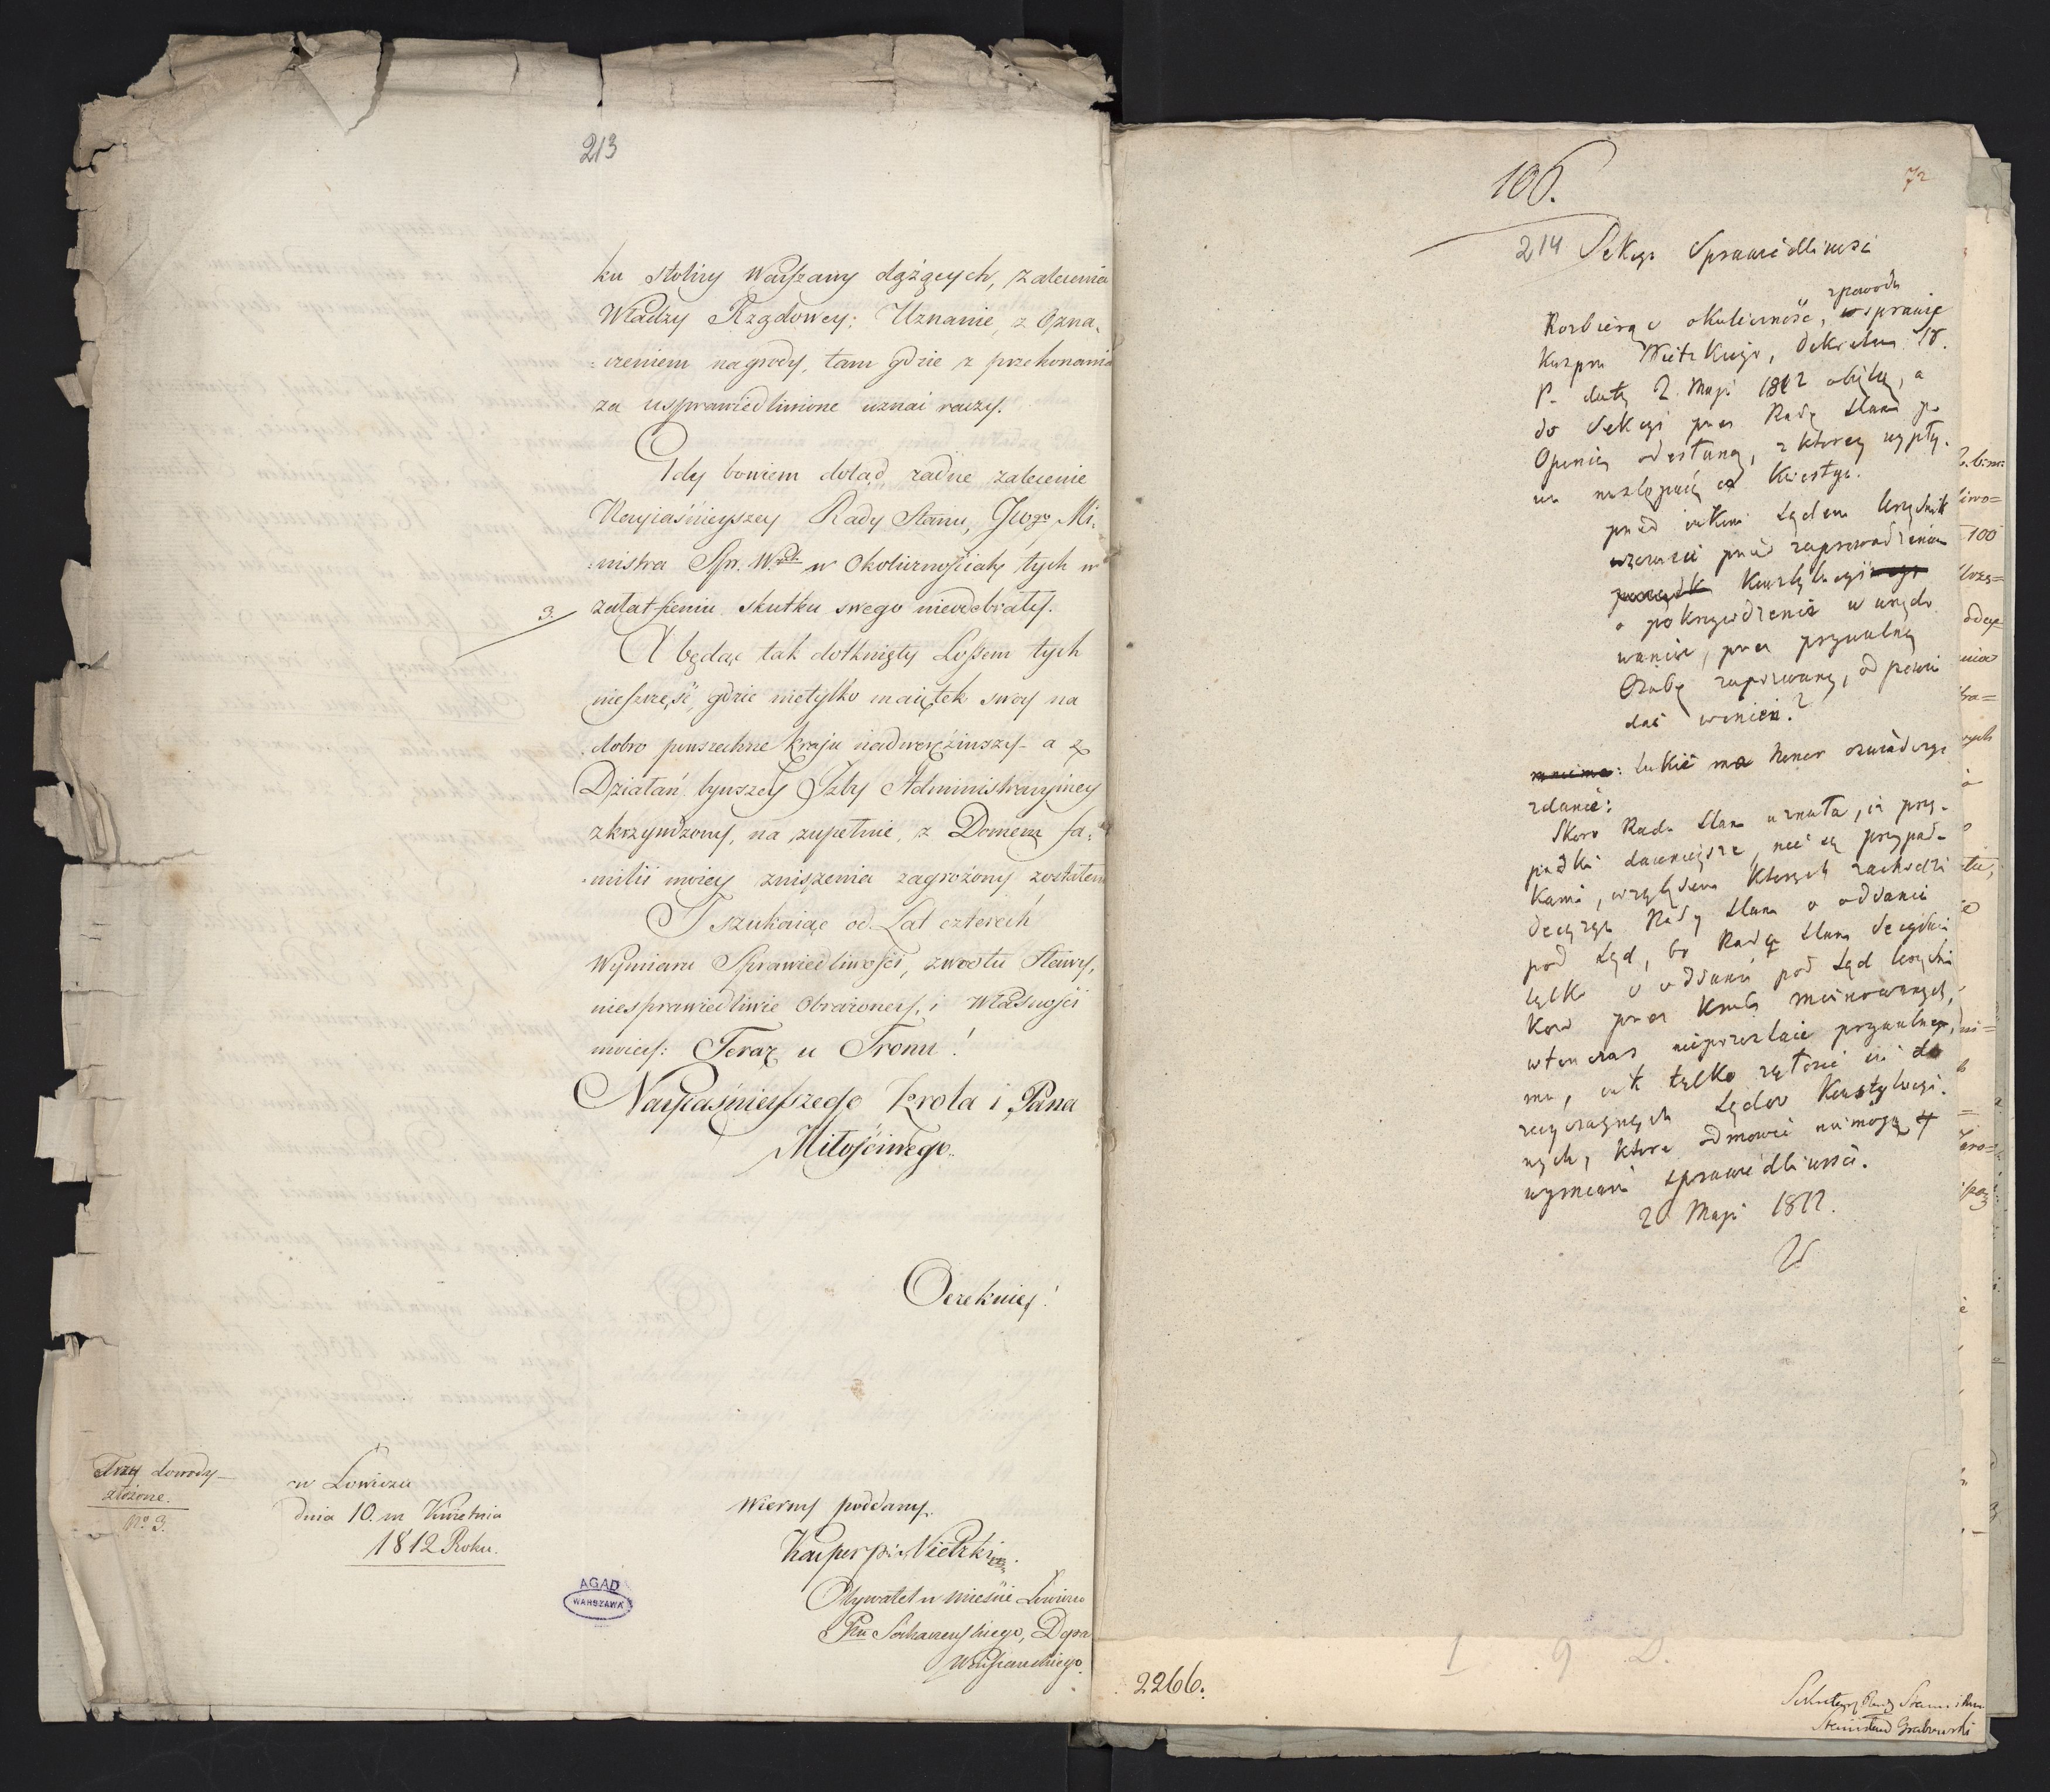 213
ku stolicy Warszawy dążących, zalecenia
Władzy Rządowey: Uznanie, z Ozna-
=czeniem nagrody, tam gdzie z przekonania
za usprawiedliwione uznać raczy.
Gdy bowiem dotąd, żadne zalecenie
Nayiaśnieyszey Rady Stanu, JWgo Mi-
=nistra Spr. W. w Okolicznościach tych w
3. załatwieniu skutku swego nieodebrały.
A będąc tak dotknięty Lossem tych
nieszczęść, gdzie nietylko maiątek swoy na
dobro powszechne kraju nadwerężiwszy - a z
Działań bywszey Izby Administracyiney
zkrzywdzony, na zupełnie, z Domem fa-
=milii moiey zniszczenia zagrożony zostałem
I szukaiąc od Lat czterech
Wymiaru Sprawiedliwości, zwrotu Sławy,
niesprawiedliwie Obrażoney, i Własności
moiey: Teraz u Tronu!
Nayiaśnieyszego Krola i Pana
Miłościwego
Oczekuię!
Trzy dowody
złożone.
No 3.
w Łowiczu
dnia 10. m Kwietnia
1812 Roku.
wierny poddany.
Kasper Wietzki
Obywatel w mieście Łowiczu
Ptu Sochaczewskiego, Depa
Warszawskiego.
AGAD
WARSZAWA
106.
72
214 Sekcya Sprawiedliwości
z powodu
Rozbieraiąc okoliczność, w sprawie
Kaspra Wietzkiego, dekretem N.
P. daty 2 Maja 1812 obiętą, a
do Sekcyi przez Radę Stanu po
Opinią odesłaną, z ktorey wypły-
wa następuiąca kwestya.
przed iakim Sądem Urzędnik
wczasie przed zaprowadzeniem
porządk Konstytucyi
o pokrzywdzenie w urzędo
waniu, przez prywatną
Osobę zapozwany, odpowia
dać winien?
takie ma honor oświadczyć
zdanie:
Skoro Rada Stanu uznała, iż przy-
padki dawnieysze, nie są przypad-
kami, względem ktorych zachodzi
decyzya Rady Stanu o oddanie
pod Sąd, bo Rada Stanu decyduie
tylko o oddaniu pod Sąd Urzędni
kow przez Krola mianowanych,
wtenczas niepozostaie prywatne
mu, iak tylko zgłosić się do
zwyczaynych Sądow Konstytucyi-
nych, ktore odmowić niemogą
wymiaru sprawiedliwości.
2 Maja 1812.
2266.
Sekretarz Rady Stanu i Min
Stanisław Grabowski